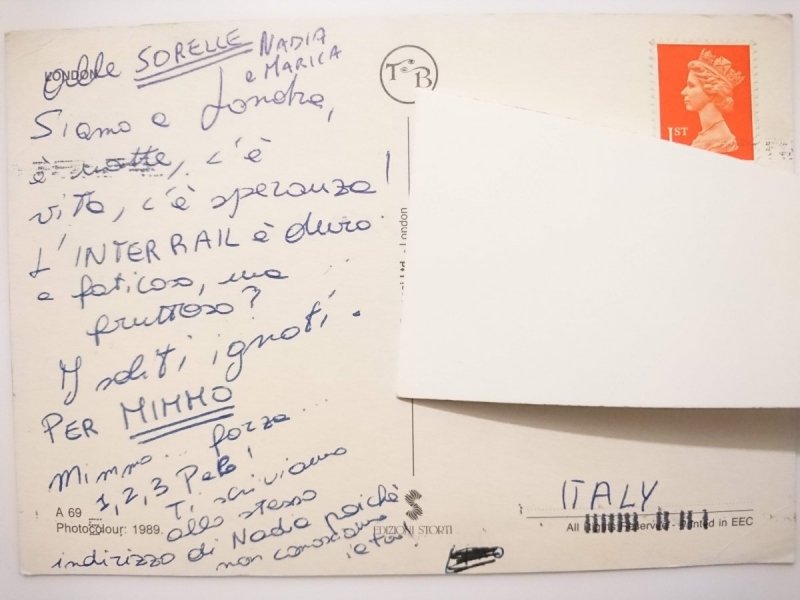 LONDON
alle SORELLE NADIA
e MARICA
Siamo a Londra,
è notte, c'è
vita, c'è speranza!
L'INTERRAIL è duro
e faticoso, ma ...
fruttoso?
I soliti ignoti.
PER MIMMO
Mimmo... forza...
1, 2, 3 Pelè!
Ti scriviamo
allo stesso
indirizzo di Nadia poichè
non conosciamo
A 69
Photocolour: 1989.
EDIZIONI STORTI
TB
Ltd. - London
1ST
ITALY
All Rights Reserved - Printed in EEC